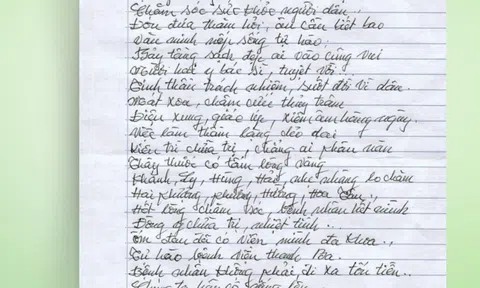 Chăm sóc sức khỏe người dân.
Đón đưa thăm hỏi, ân cần biết bao
Văn minh nếp sống tự hào
Bảy tầng sạch đẹp ai vào cũng vui
Người hai y bác sĩ, tuyệt vời
Tinh thần trách nhiệm, suốt đời vì dân.
Mát xoa, châm cứu thủy trâm
Điện xung, giác
Việc làm thầm lặng dẻo dai
Kiên trì chữa trị, chẳng ai phàn nàn
Thầy thuốc có tấm lòng vàng
Khánh, Ly, Hùng, Hảo, nhẹ nhàng lo chăm
Hai Phương, phường, Hường, Hoa
Hết lòng chăm sóc, bệnh nhân hết mình
Đông y chữa trị, nhiệt tình...
Ốm đau đã có viện mình đa khoa..
Tự hào bệnh viện Thanh Ba.
Bệnh nhân không phải, đi xa tốn tiền..